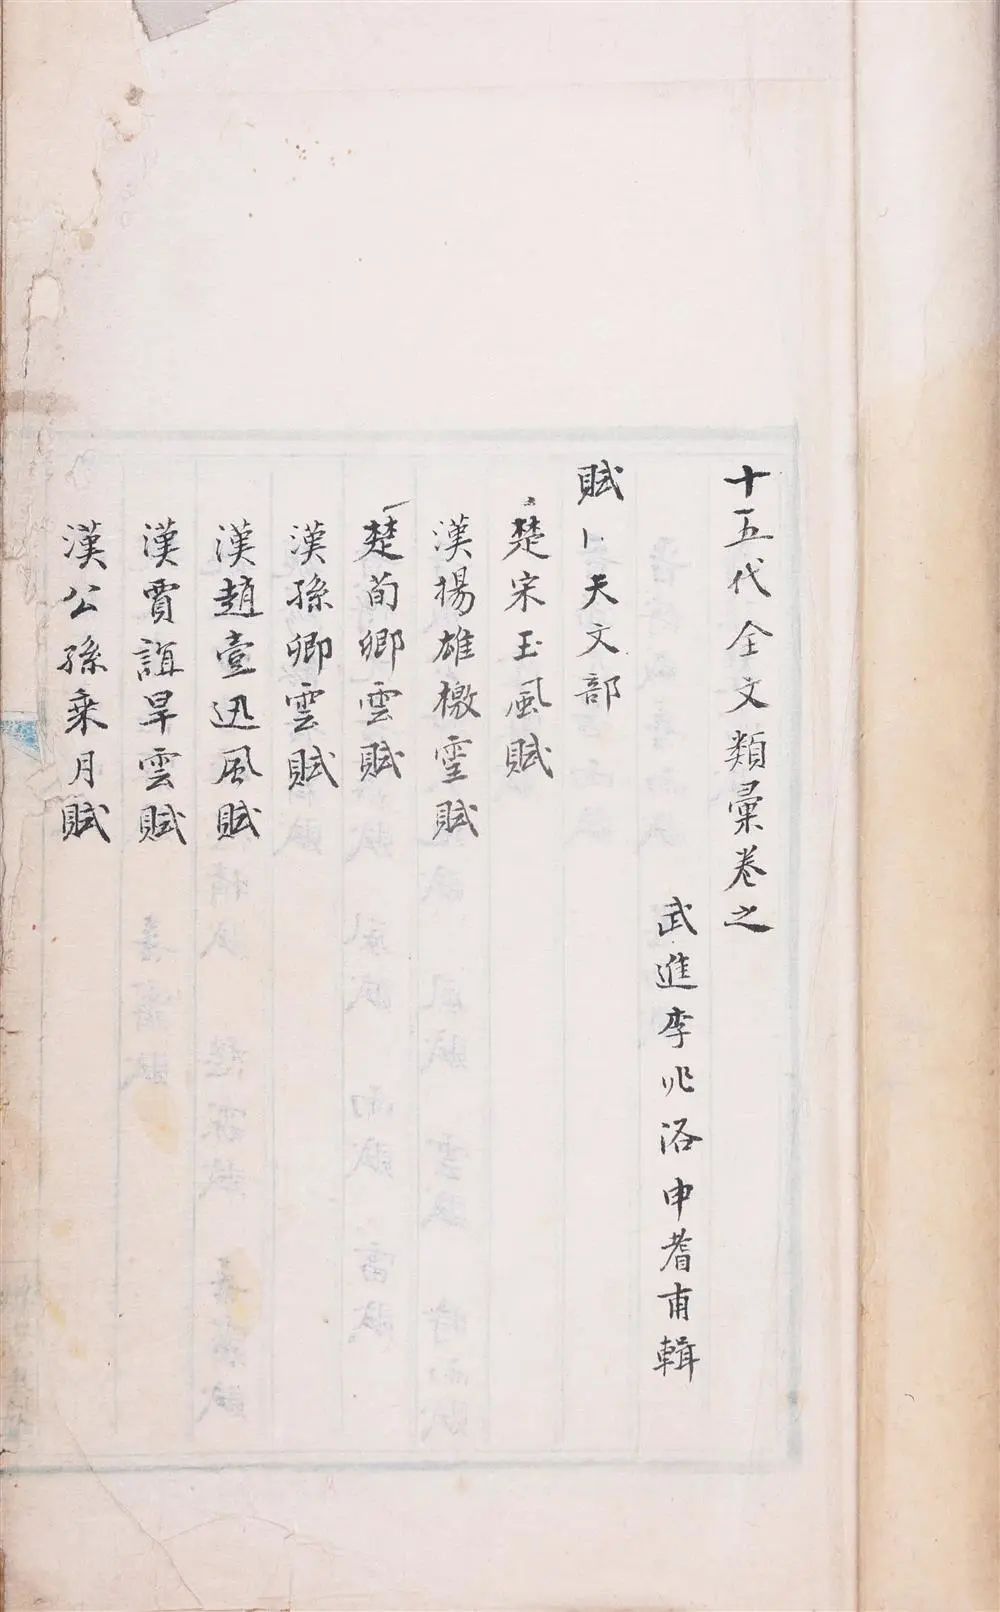 十五代全文類彙卷之
武進李兆洛申耆甫輯
賦 天文部
楚宋玉風賦
漢揚雄檄靈賦
楚荀卿雲賦
漢孫卿雲賦
漢趙壹迅風賦
漢賈誼旱雲賦
漢公孫乘月賦